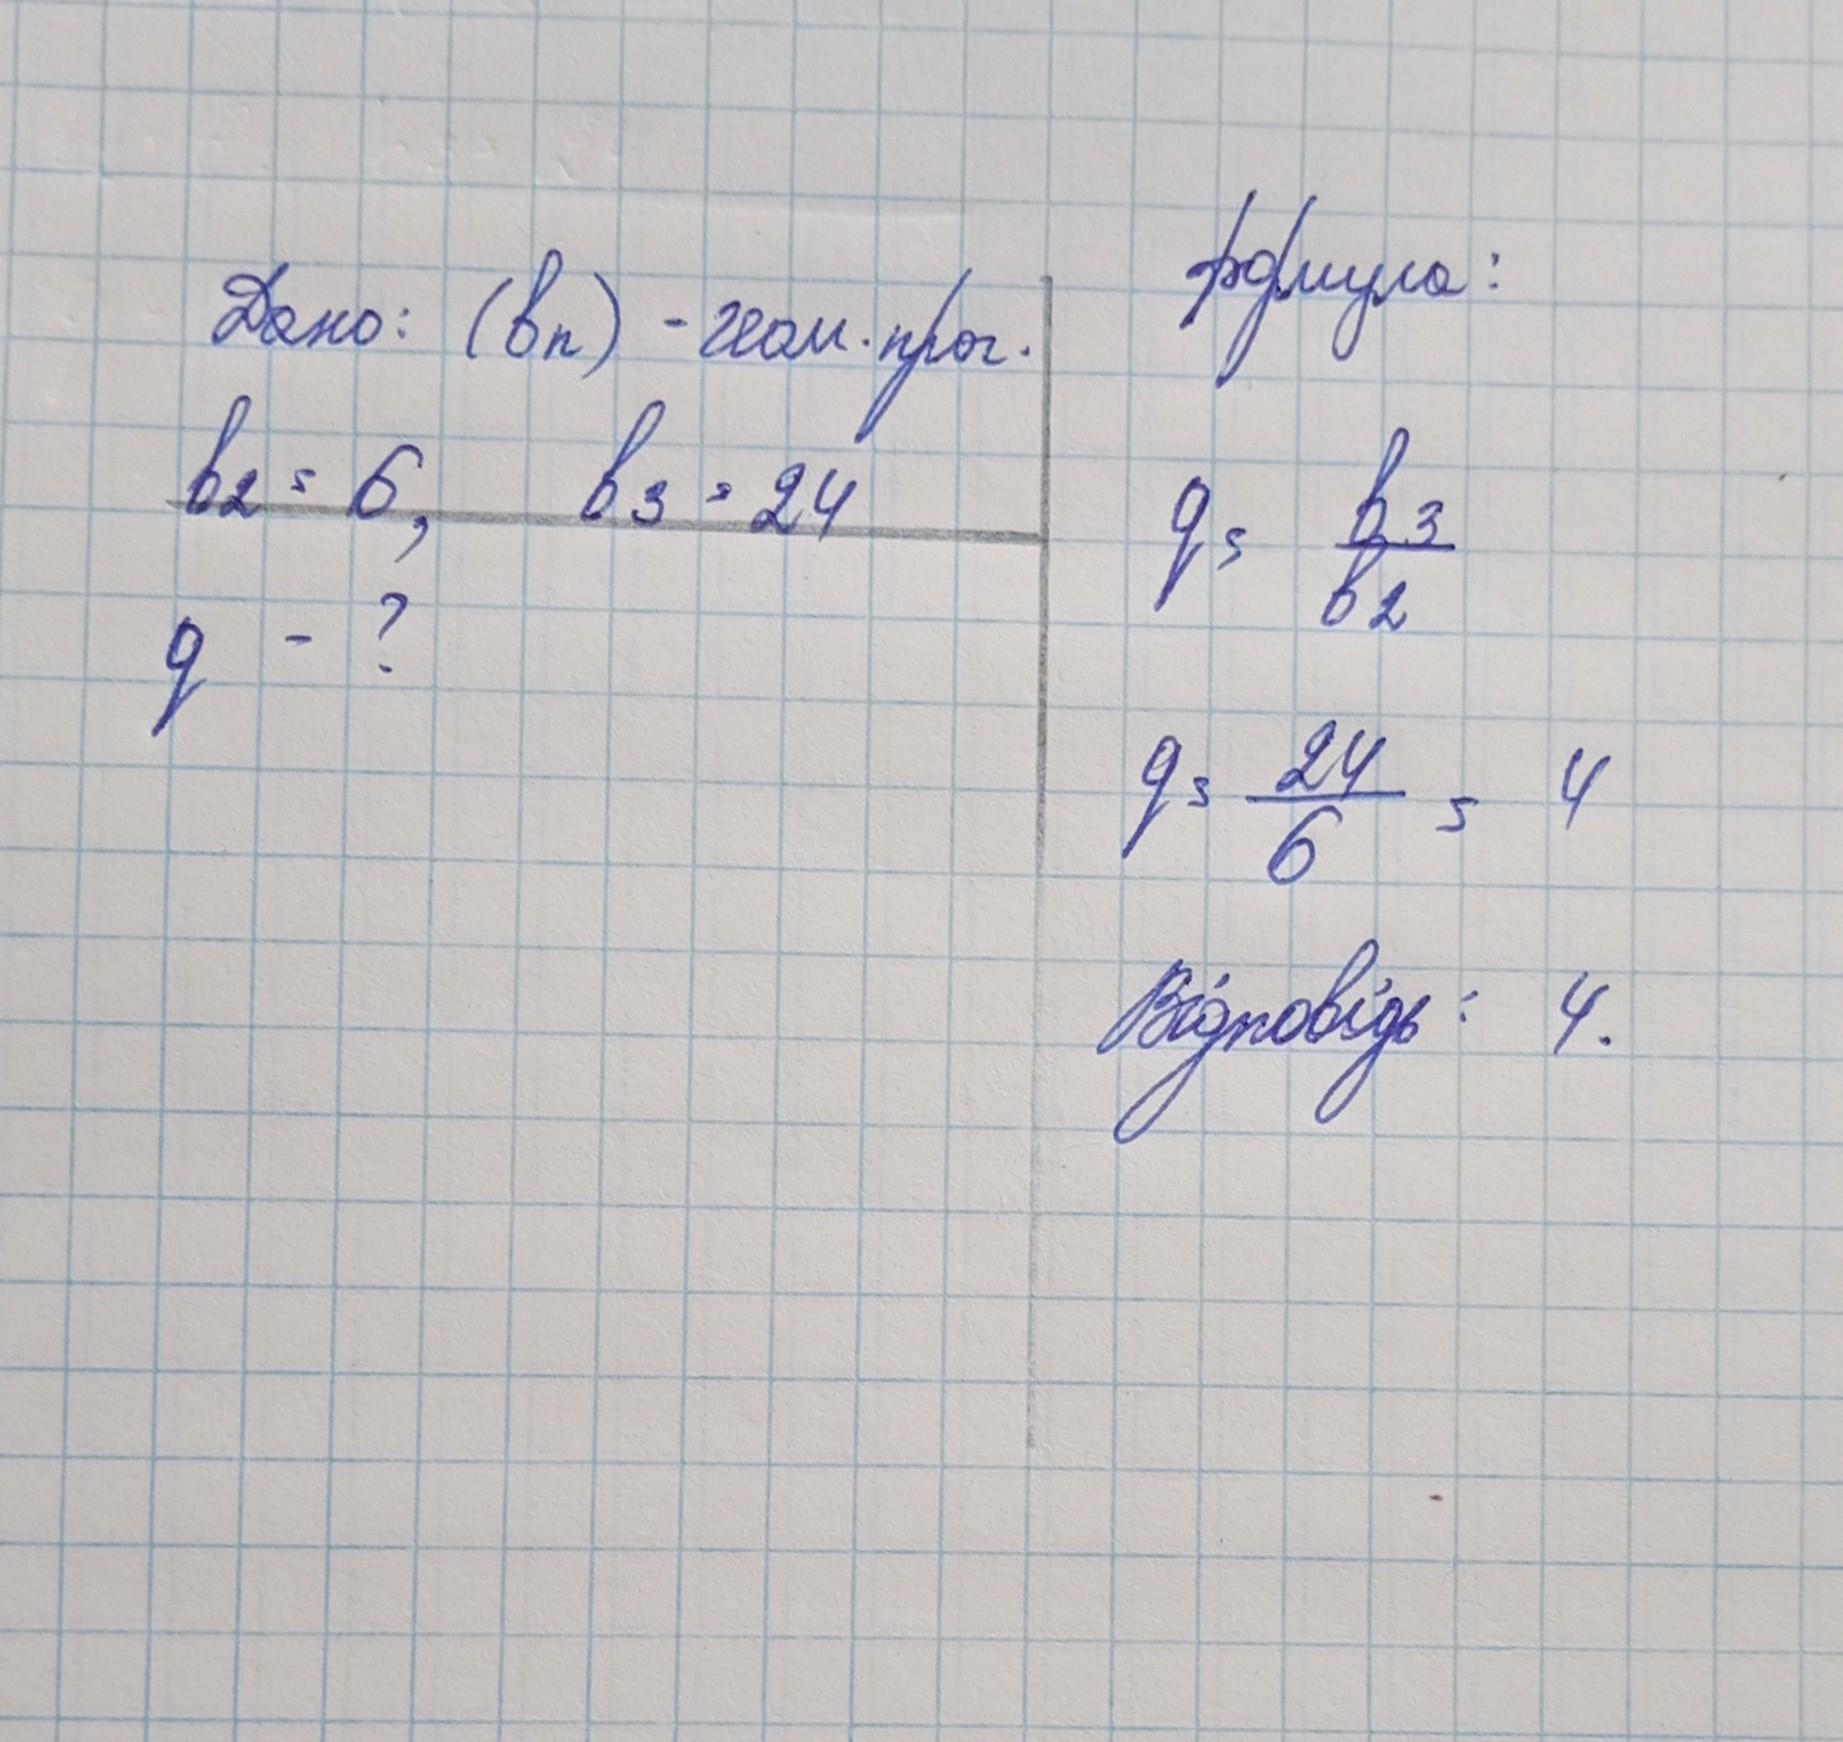 Дано: (bn) - геом. прог.
b2 = 6, b3 = 24
q - ?
формула:
q = b3/b2
q = 24/6 = 4
Відповідь: 4.